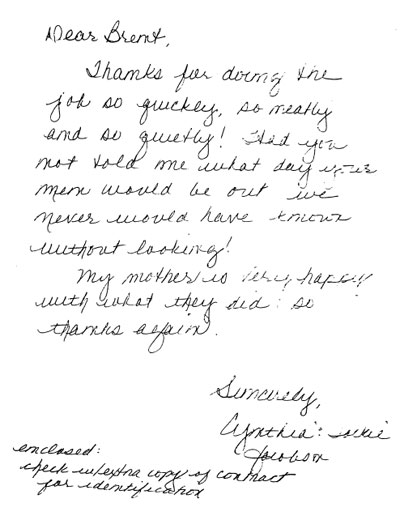 Dear Brent,
Thanks for doing the
job so quickey, so neatly
and so quietly! Had you
not told me what day your
men would be out we
never would have known
without looking!
My mother is very happy
with what they did: so
thanks again.
Sincerely,
Cynthia
Jacobson
enclosed:
check w/extra copy of contract
for identification